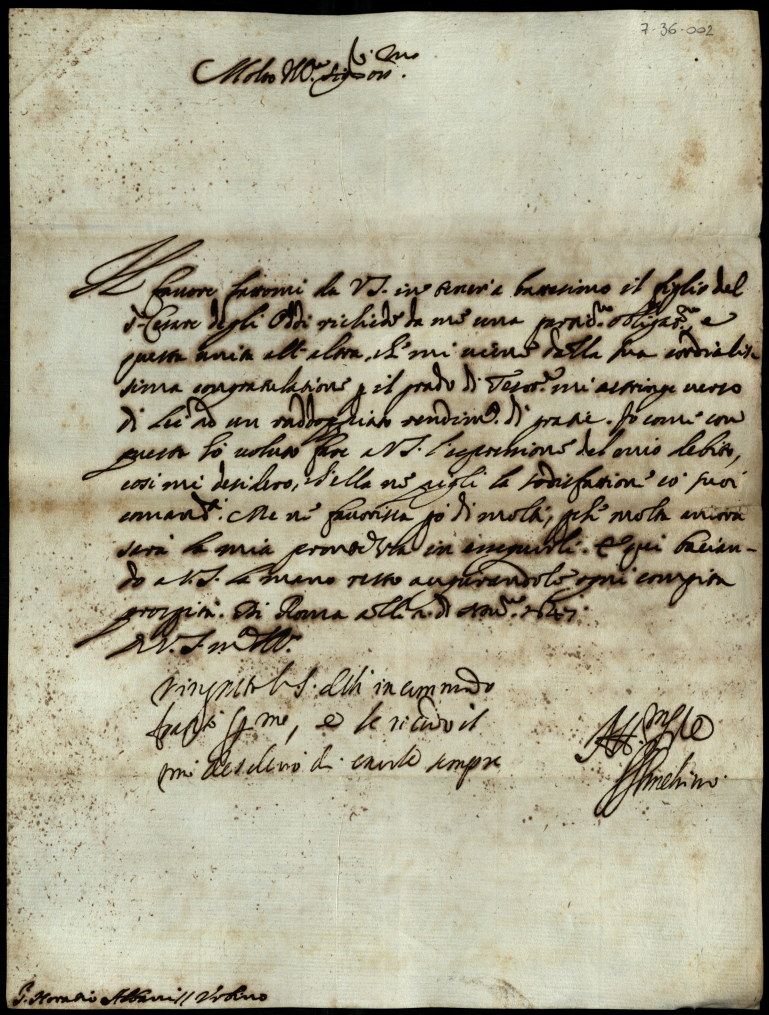 7-36-002
Molto Ill.re Sig.or
Il favore fattomi da VS. in tener a battesimo il figlio del
S.r Cesare degli Oddi richiede da me una partic.re obligat.ne, e
questa unita all'altra, ch'mi viene dalla sua cordialis-
sima congratulatione p il grado di Tesor.re mi astringe verso
di lei ad un raddoppiato rendim.to di gratie. Io come con
questa hò voluto fare a VS. l'espressione del mio debito,
cosi mi desidero, ch'ella ne pigli la sodisfattione co' suoi
comand.i. Me ne favorisca pò di molti, pche molta ancora
sarà la mia prontezza in esseguirli. E qui bacian-
do a V.S. la mano resto augurandole ogni compita
prosp.ità. Di Roma alli di 1647.
D V. S. m.to Ill.re
Ringratio V.S. dell'incommodo
p me, e le ricordo il
mio desiderio di servirla sempre
S. Horatio Albani // Urbino